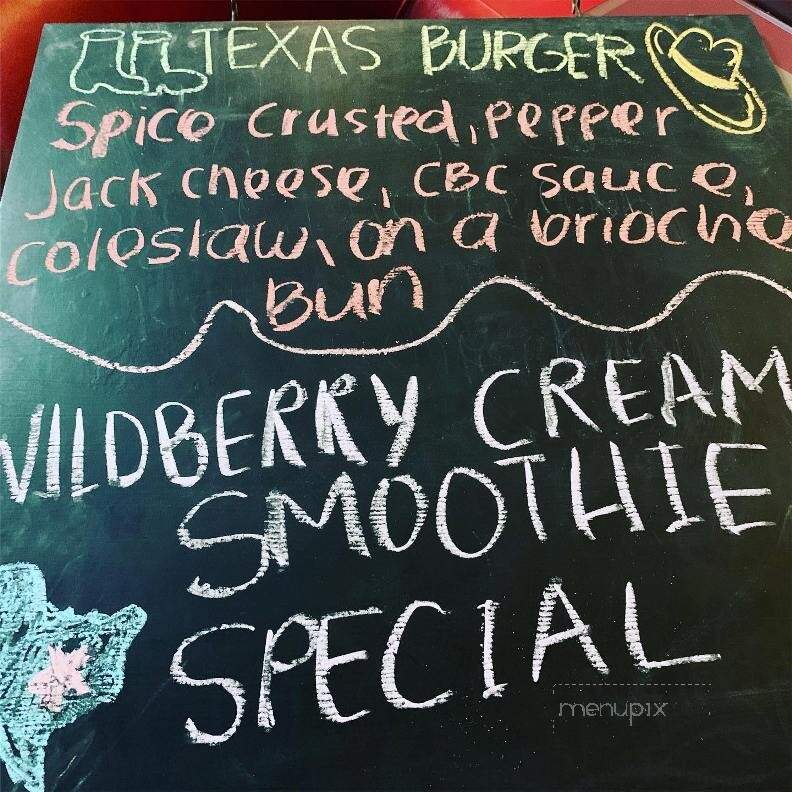 TEXAS BURGER
Spice Crusted, pepper
Jack cheese, CBC sauce,
coleslaw, on a brioche
Bun
WILDBERRY CREAM
SMOOTHIE
SPECIAL
menupix